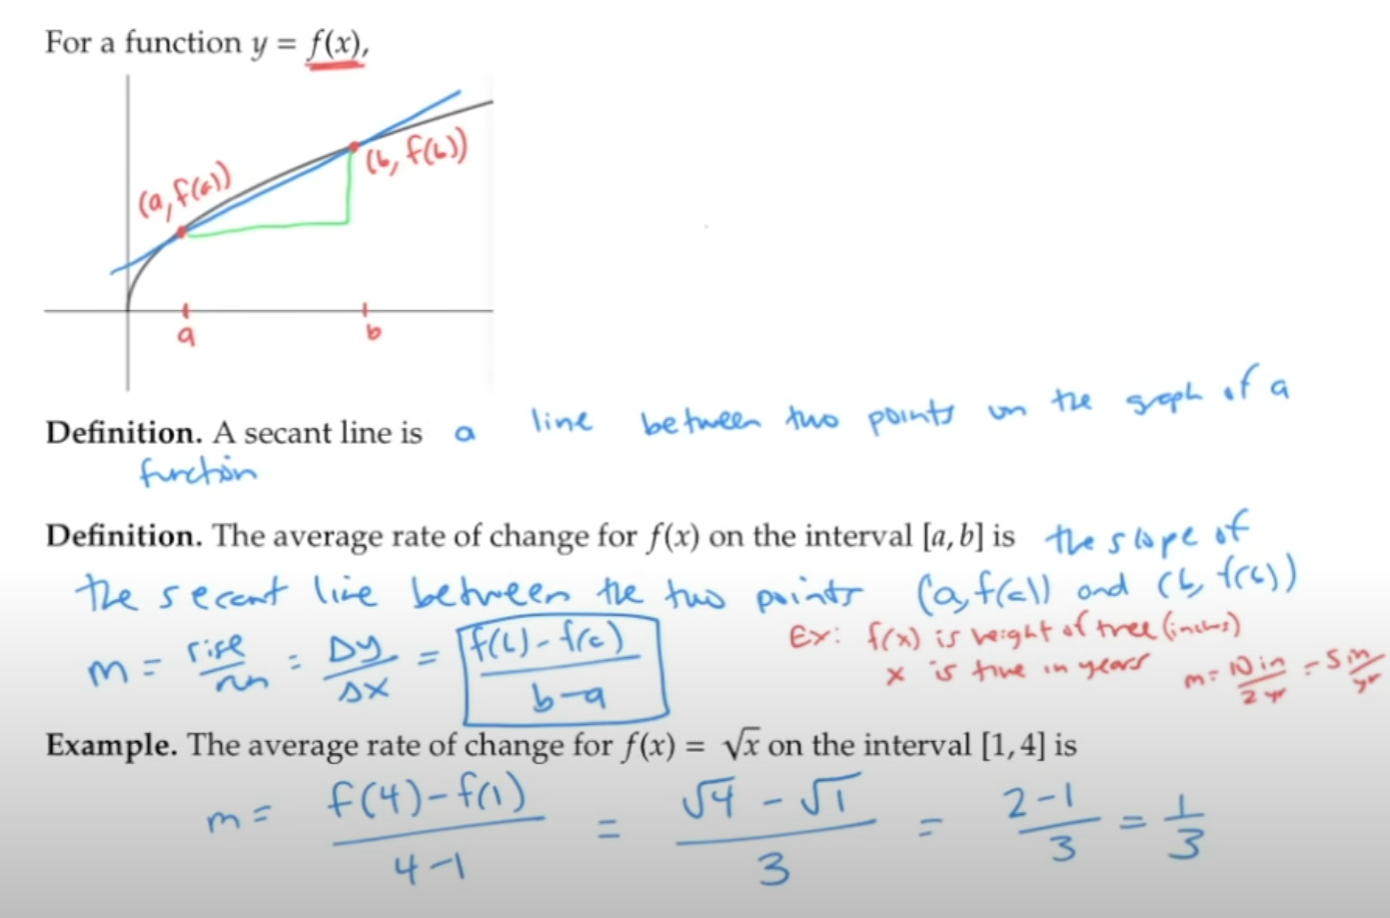 For a function y = f(x),
(a, f(a))
(b, f(b))
a
b
Definition. A secant line is a line between two points on the graph of a
function
Definition. The average rate of change for f(x) on the interval [a, b] is the slope of
the secant line between the two points (a, f(a)) and (b, f(b))
m = rise/run = Δy/Δx = f(b)-f(a)/b-a
Ex: f(x) is height of tree (inches)
x is time in years m = 10 in/2 yr = 5 in/yr
Example. The average rate of change for f(x) = √x on the interval [1, 4] is
m = f(4)-f(1)/4-1 = √4 - √1/3 = 2-1/3 = 1/3